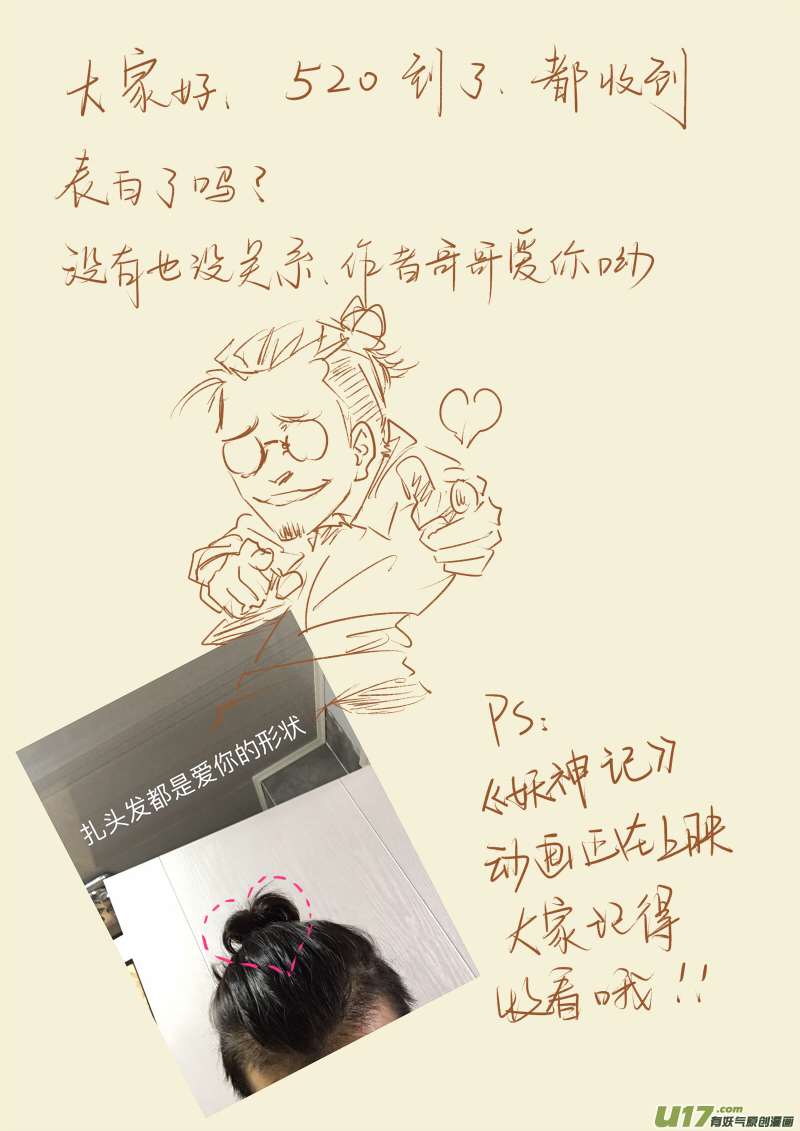 大家好、520到了、都收到
表白了吗？
没有也没关系、作者哥哥爱你呦
扎头发都是爱你的形状
PS：
《妖神记》
动画正在上映
大家记得
收看哦！！
U17.com
有妖气原创漫画